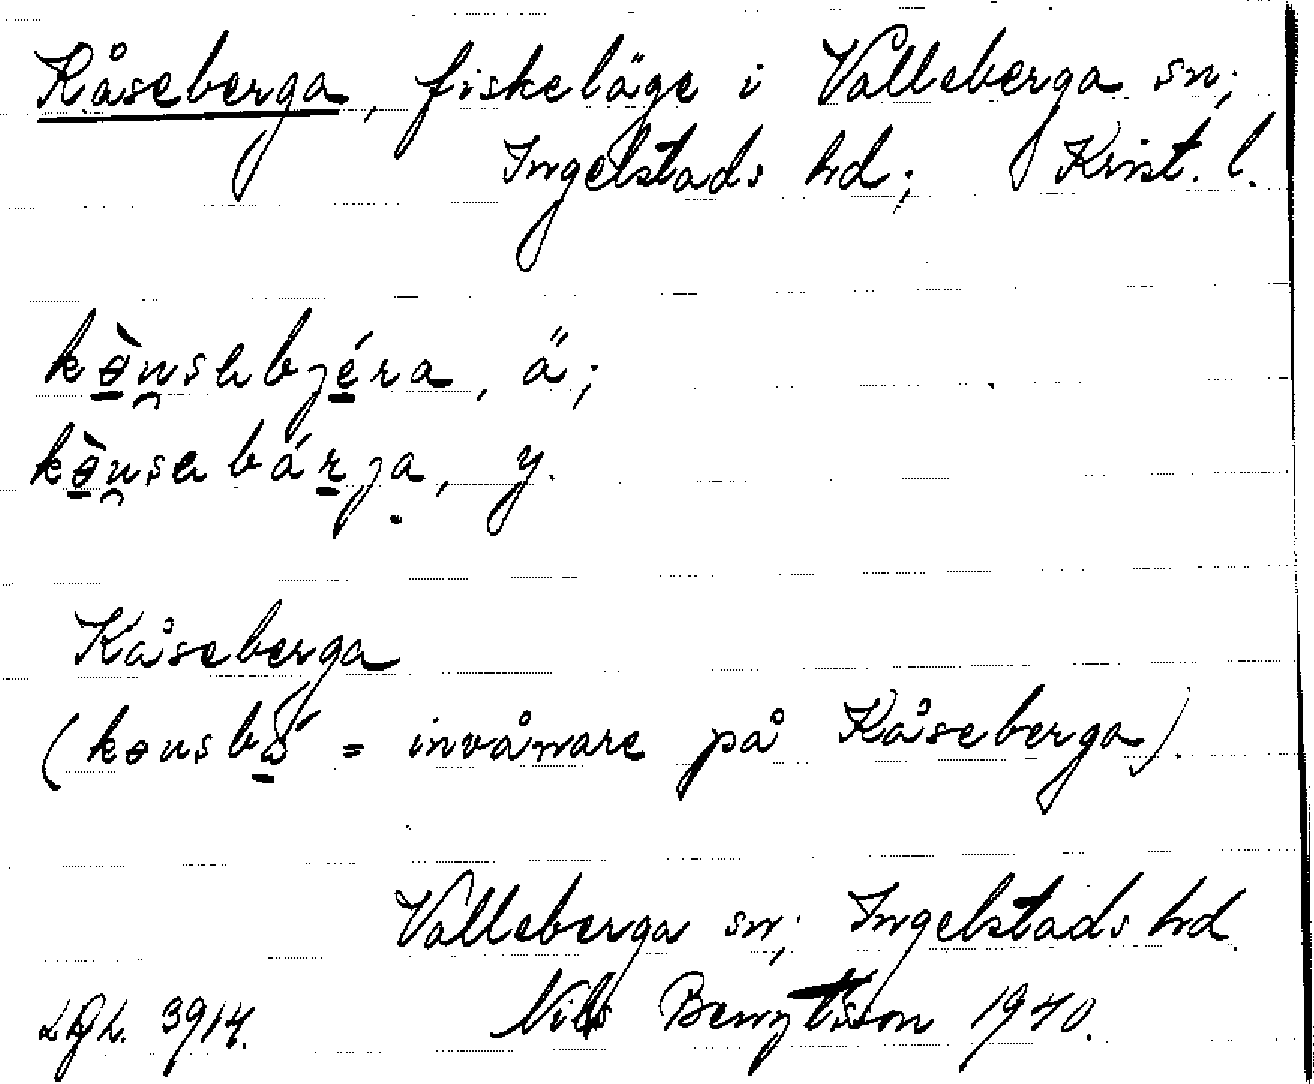 Kåseberga, fiskeläge i Valleberga sn;
Ingelstads hd; Krist. l.
kə̀u̯sabjéra, ä;
kə̀u̯sabárja, y.
Kåseberga
(kəusbó = invånare på Kåseberga).
Valleberga sn; Ingelstads hd.
3914. Nils Bengtsson 1940.